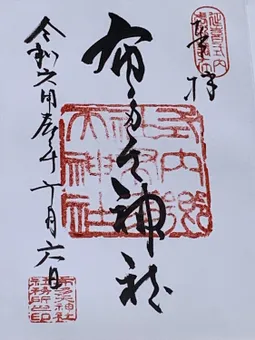 延喜式内
奉拝
布多天神社
式内郷
社布多
天神社
令和六甲辰年十月六日
布多天神社
社務所之印